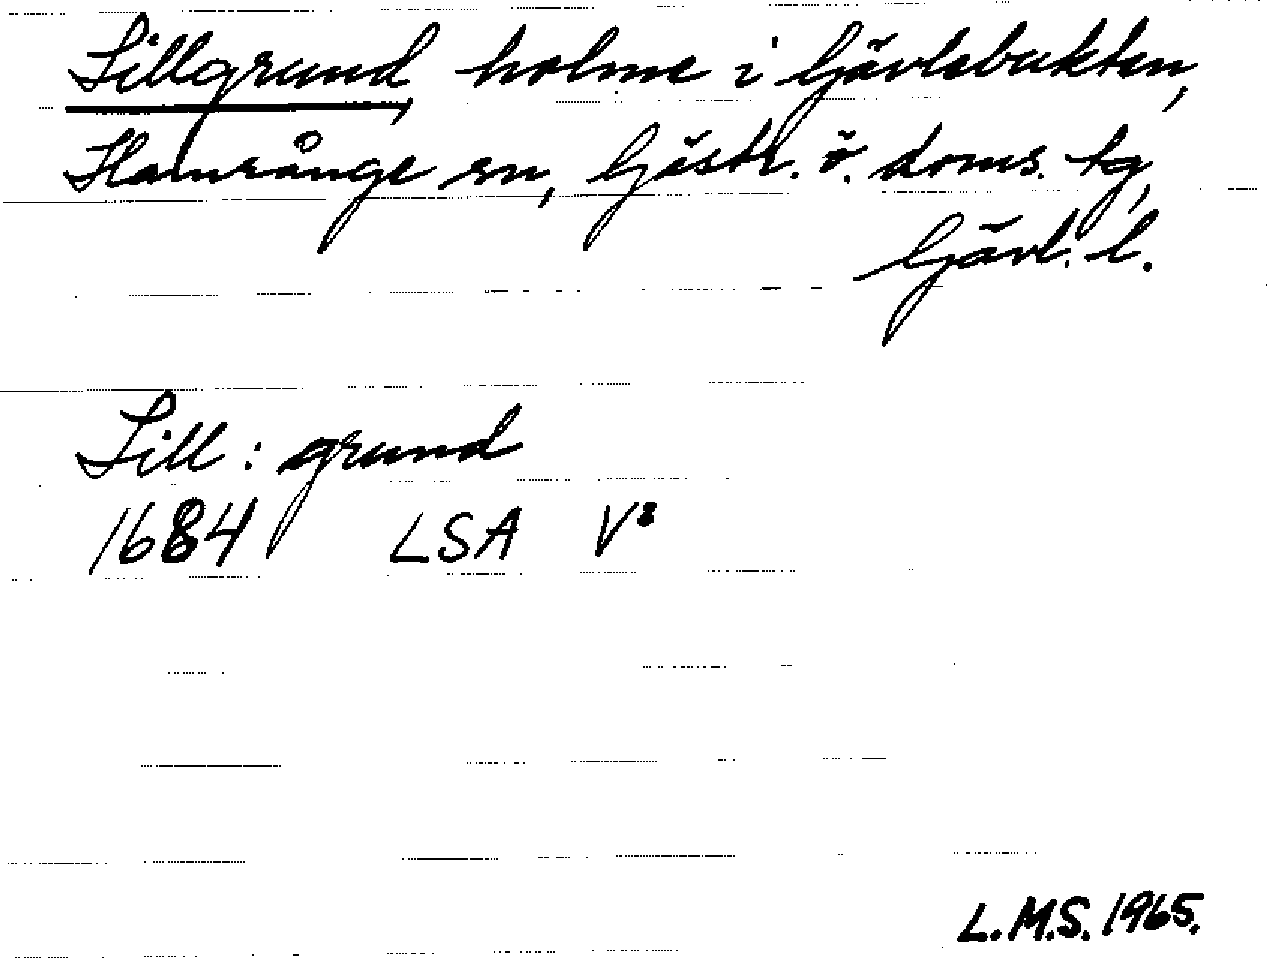 Lillgrund, holme i Gävlebukten,
Hamrånge sn, Gästr. ö. doms. tg,
Gävl. l.
Lill: grund
1684 LSA V²
L.M.S. 1965.